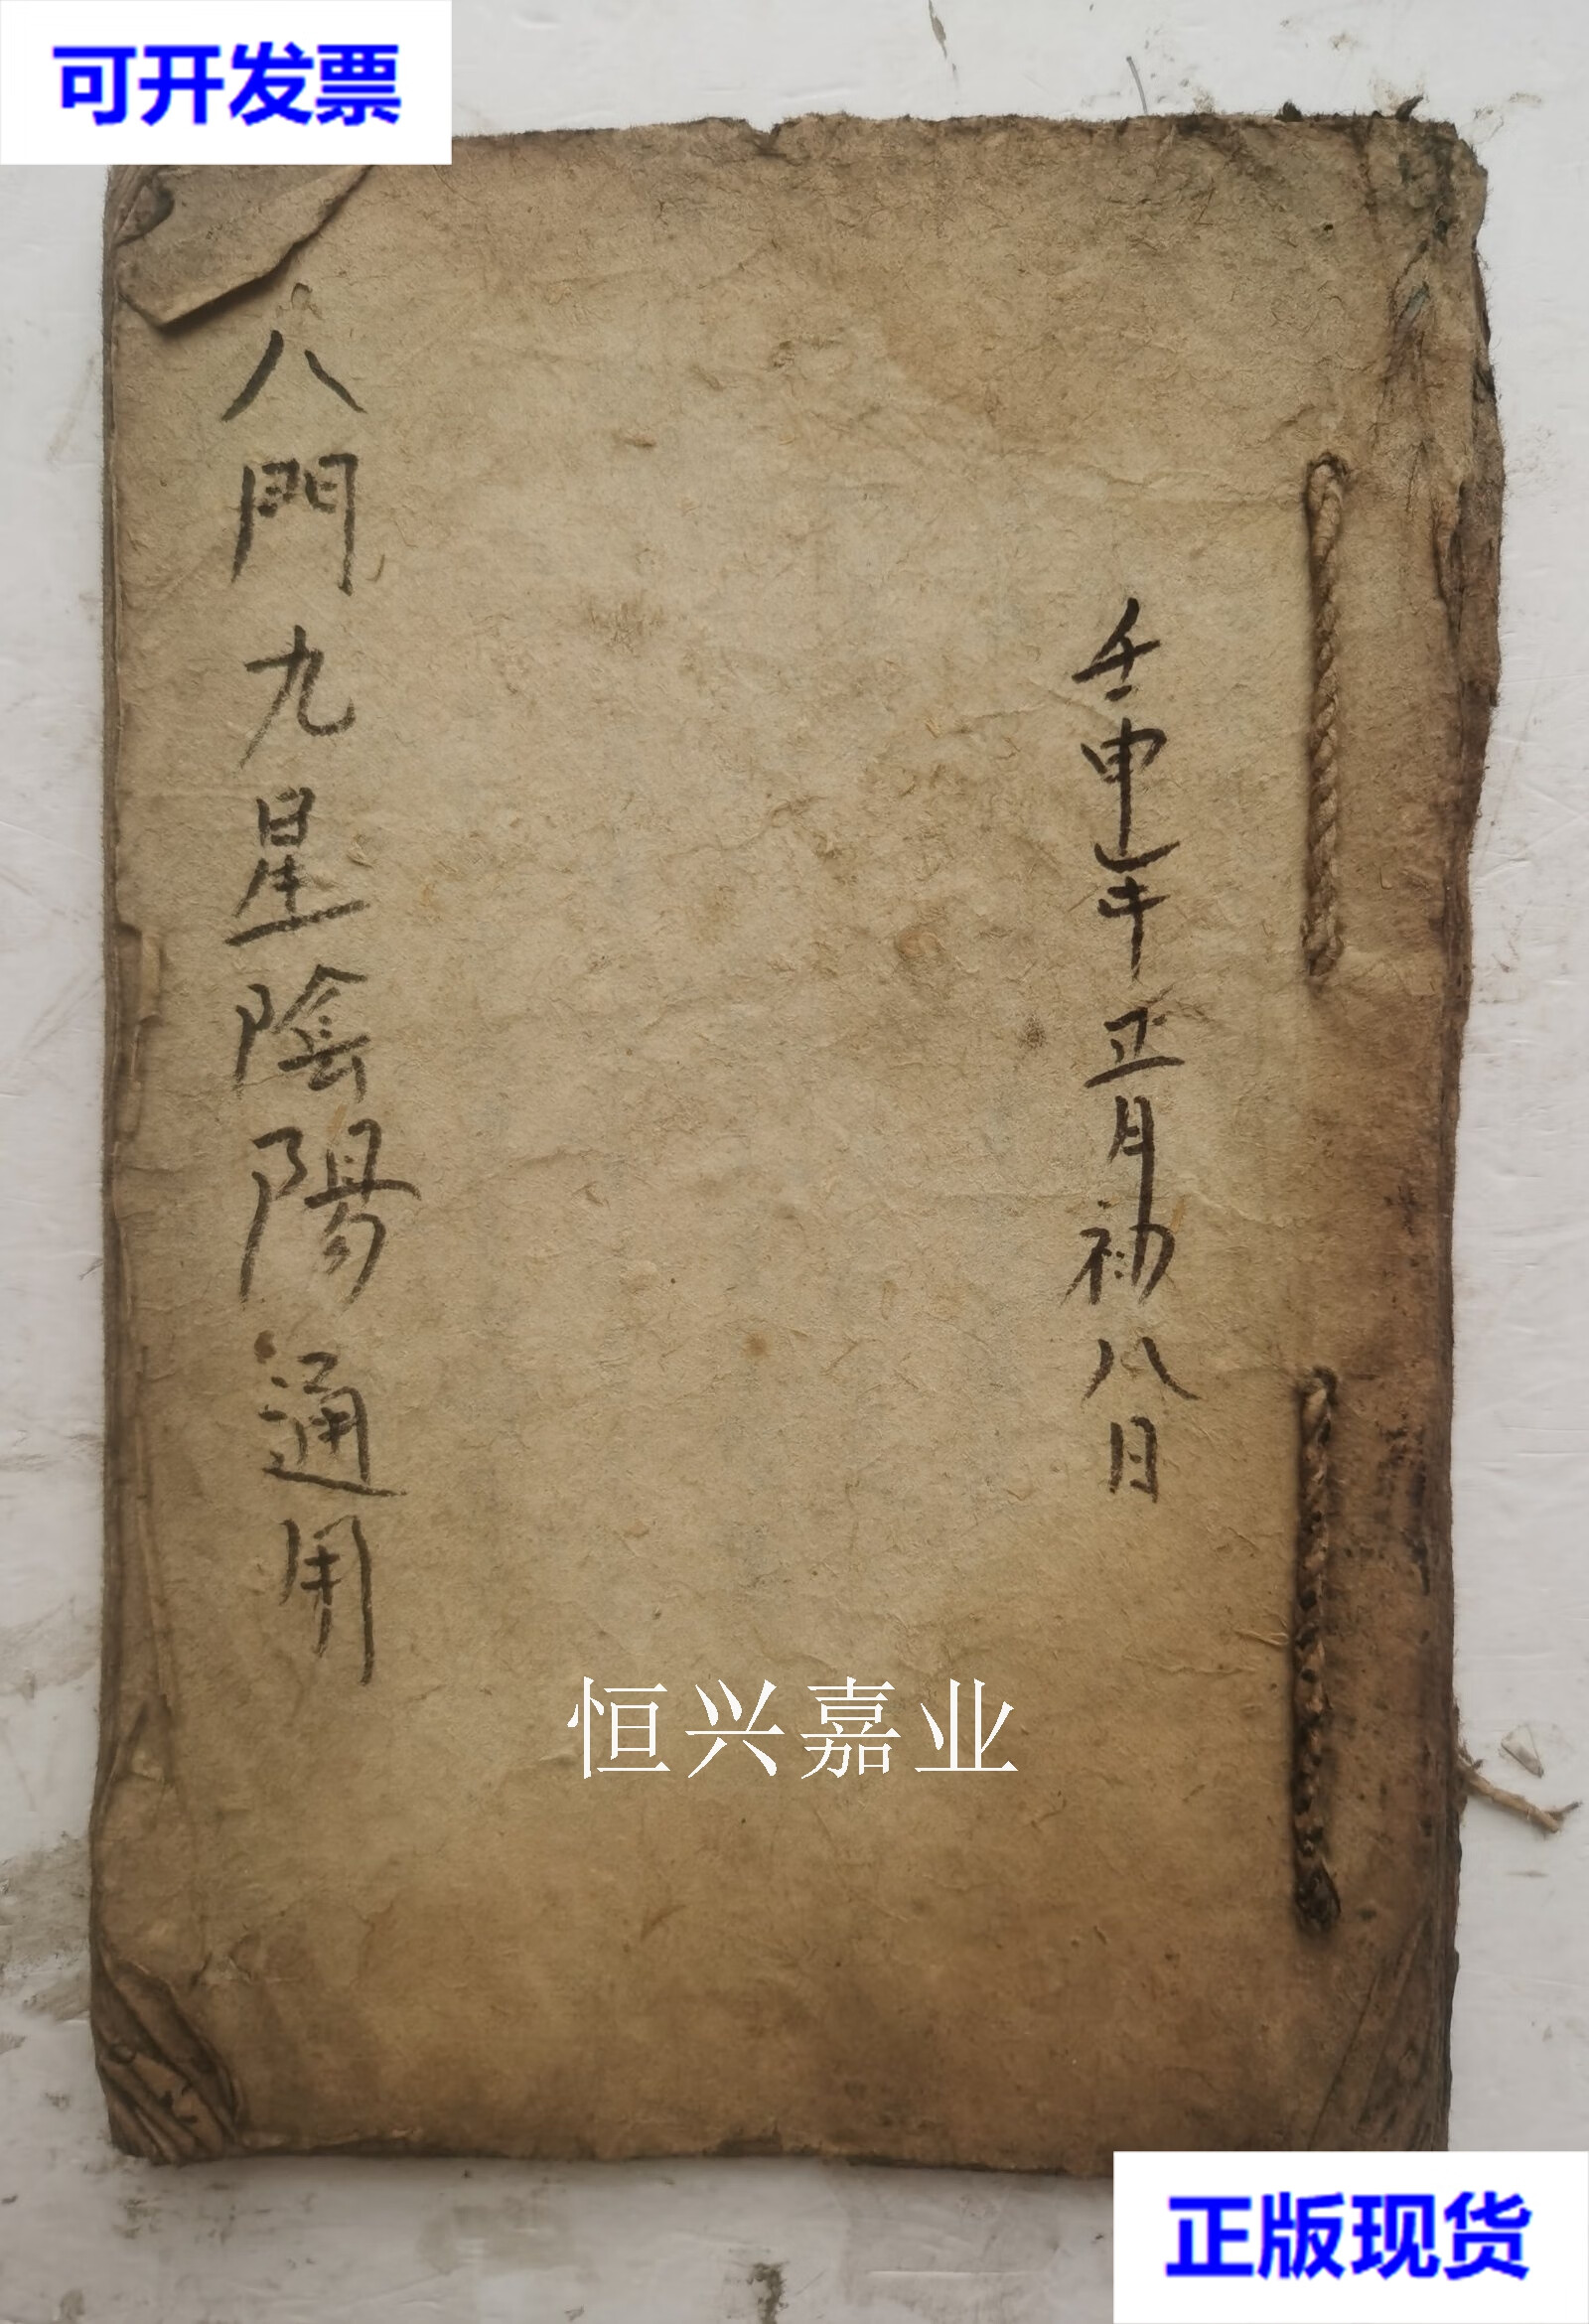 可开发票
壬申年正月初八日
八門九星陰陽通用
恒兴嘉业
正版现货